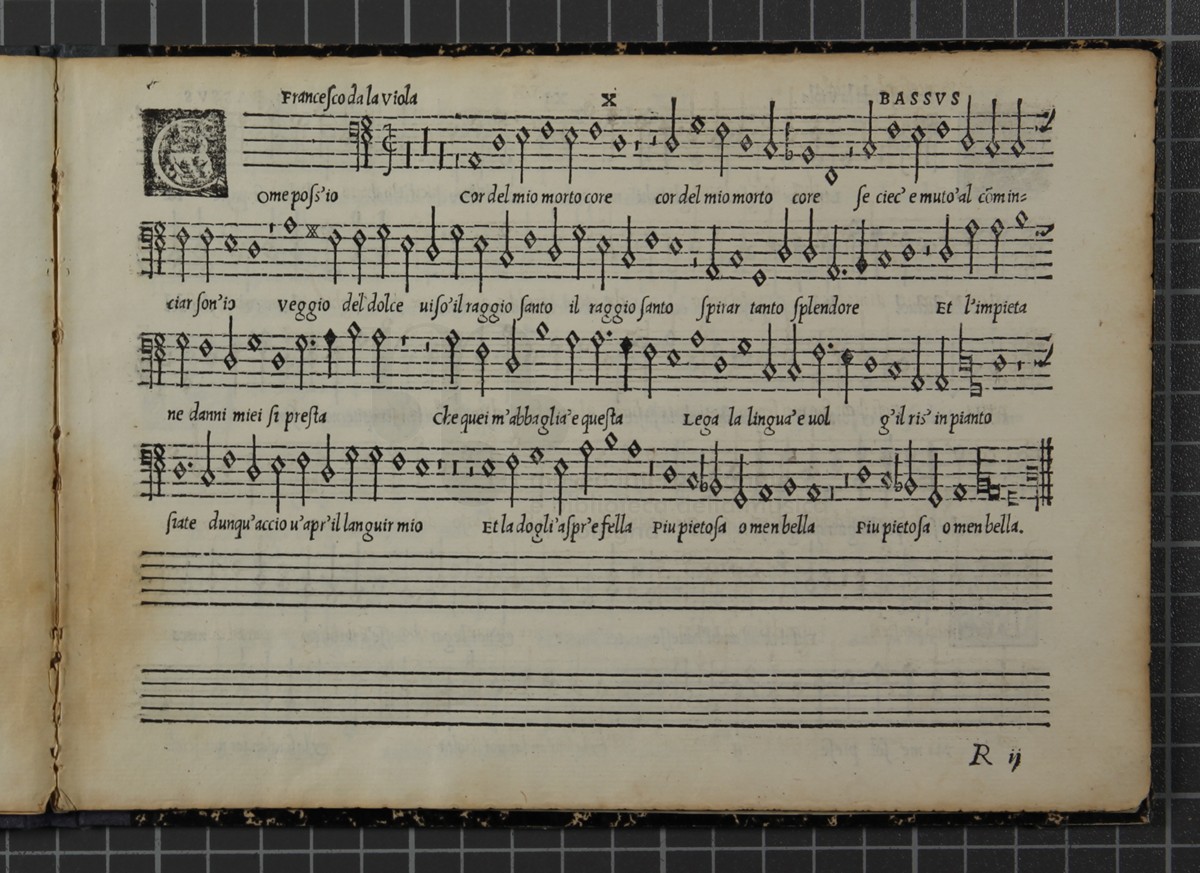 Franceſco da la Viola X BASSVS
Ome poſſ'io Cor del mio morto core cor del mio morto core ſe ciec' e muto'al cõmin=
ciar ſon'io veggio del dolce uiſo'il raggio ſanto il raggio ſanto ſpirar tanto ſplendore Et l'impieta
ne danni miei ſi preſta Che quei m'abbaglia'e queſta Lega la lingua'e uol g'il riſ' in pianto
ſiate dunqu'accio u'apr'il languir mio Et la dogli'aſpr'e fella Piu pietoſa o men bella Piu pietoſa o men bella.
R ij